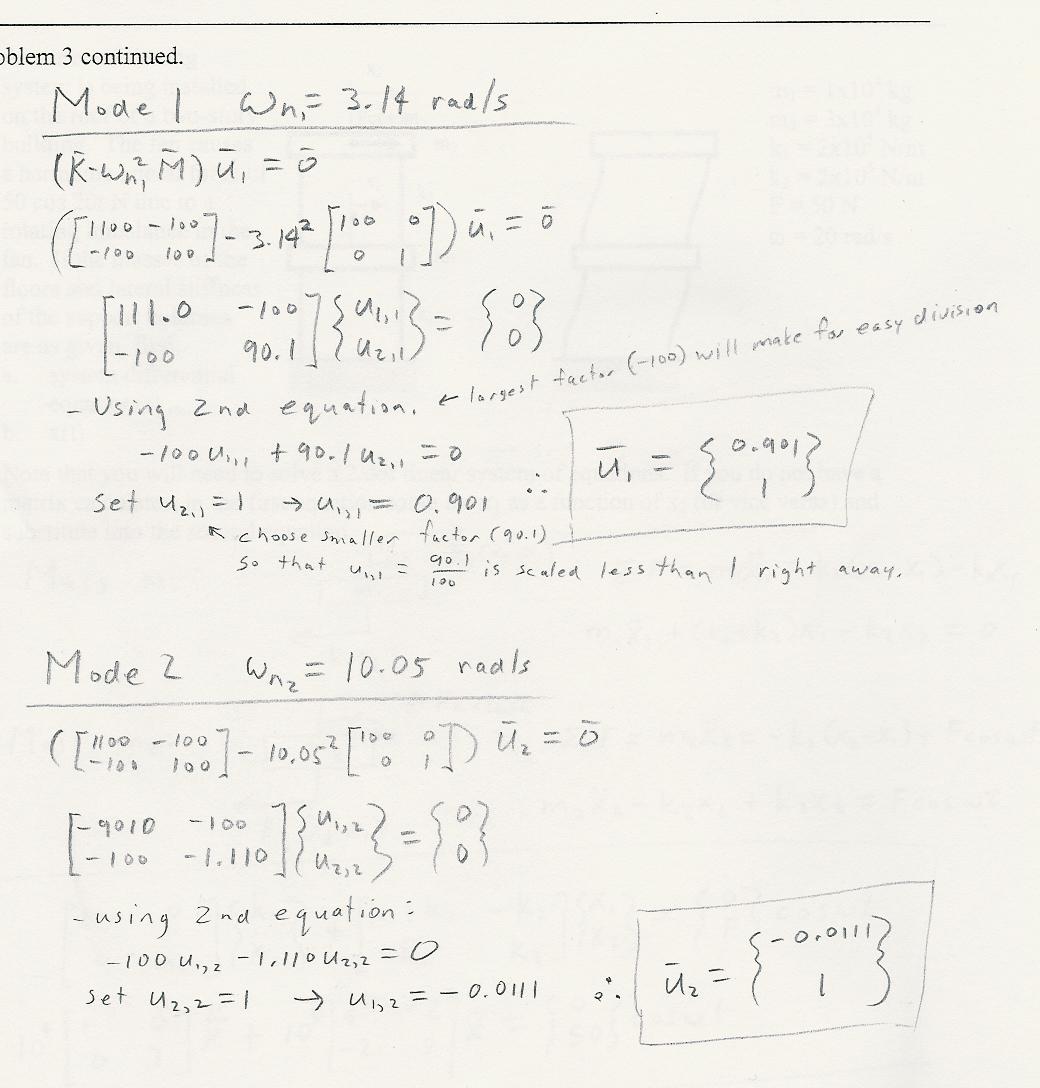 oblem 3 continued.
Mode 1 ωn₁ = 3.14 rad/s
(K̄-ωn₁² M̄) ū₁ = ō
([1100 -100; -100 100] - 3.14² [100 0; 0 1]) ū₁ = ō
[111.0 -100; -100 90.1] {u₁,₁; u₂,₁} = {0; 0}
- Using 2nd equation. ← largest factor (-100) will make for easy division
-100 u₁,₁ + 90.1 u₂,₁ = 0
set u₂,₁ = 1 → u₁,₁ = 0.901 ∴ ū₁ = {0.901; 1}
↖ choose smaller factor (90.1)
so that u₁,₁ = 90.1/100 is scaled less than 1 right away.
Mode 2 ωn₂ = 10.05 rad/s
([1100 -100; -100 100] - 10.05² [100 0; 0 1]) ū₂ = ō
[-9010 -100; -100 -1.110] {u₁,₂; u₂,₂} = {0; 0}
- using 2nd equation:
-100 u₁,₂ - 1.110 u₂,₂ = 0
set u₂,₂ = 1 → u₁,₂ = -0.0111 ∴ ū₂ = {-0.0111; 1}